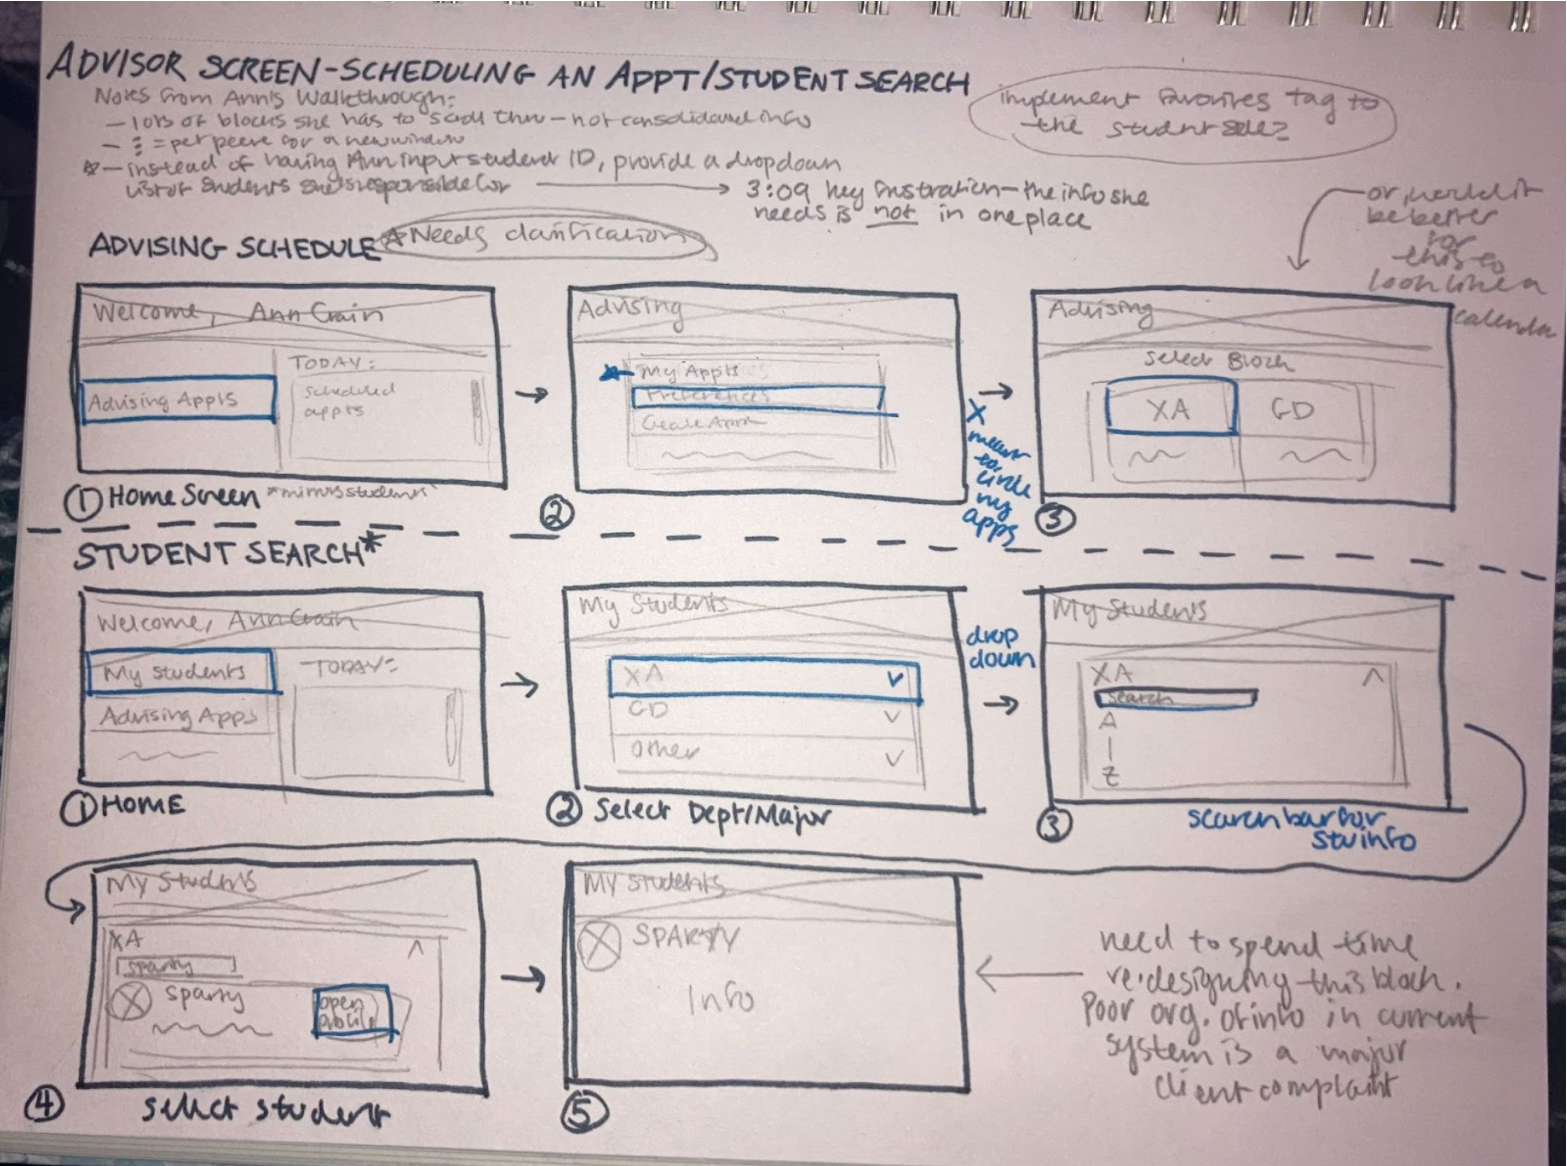 ADVISOR SCREEN-SCHEDULING AN APPT/STUDENT SEARCH
Notes from Ann's Walkthrough:
- lots of blocks she has to scroll thru - not consolidated info
- ⋮ = pet peeve for a new window
☆ - instead of having Ann input student ID, provide a dropdown
list of students she's responsible for
→ 3:09 key frustration - the info she
needs is not in one place
implement favorites tag to
the student side?
or, would it
be better
for
this to
look like a
calendar
ADVISING SCHEDULE
*Needs clarification
Welcome, Ann Crain
Advising Appts
TODAY:
Scheduled
appts
① Home Screen
Advising
My Appts
Preferences
Create Appt
②
X
meant
to
circle
my
apps
Advising
Select Block
XA
GD
③
STUDENT SEARCH*
Welcome, Ann Crain
My Students
Advising Apps
TODAY:
① HOME
My Students
XA
GD
other
② Select Dept/Major
drop
down
My Students
XA
Search
A
|
Z
③
search bar for
stu info
My Students
XA
sparty
sparty
open
profile
④
select student
My Students
SPARTY
Info
⑤
need to spend time
re-designing this block.
Poor org. of info in current
system is a major
client complaint